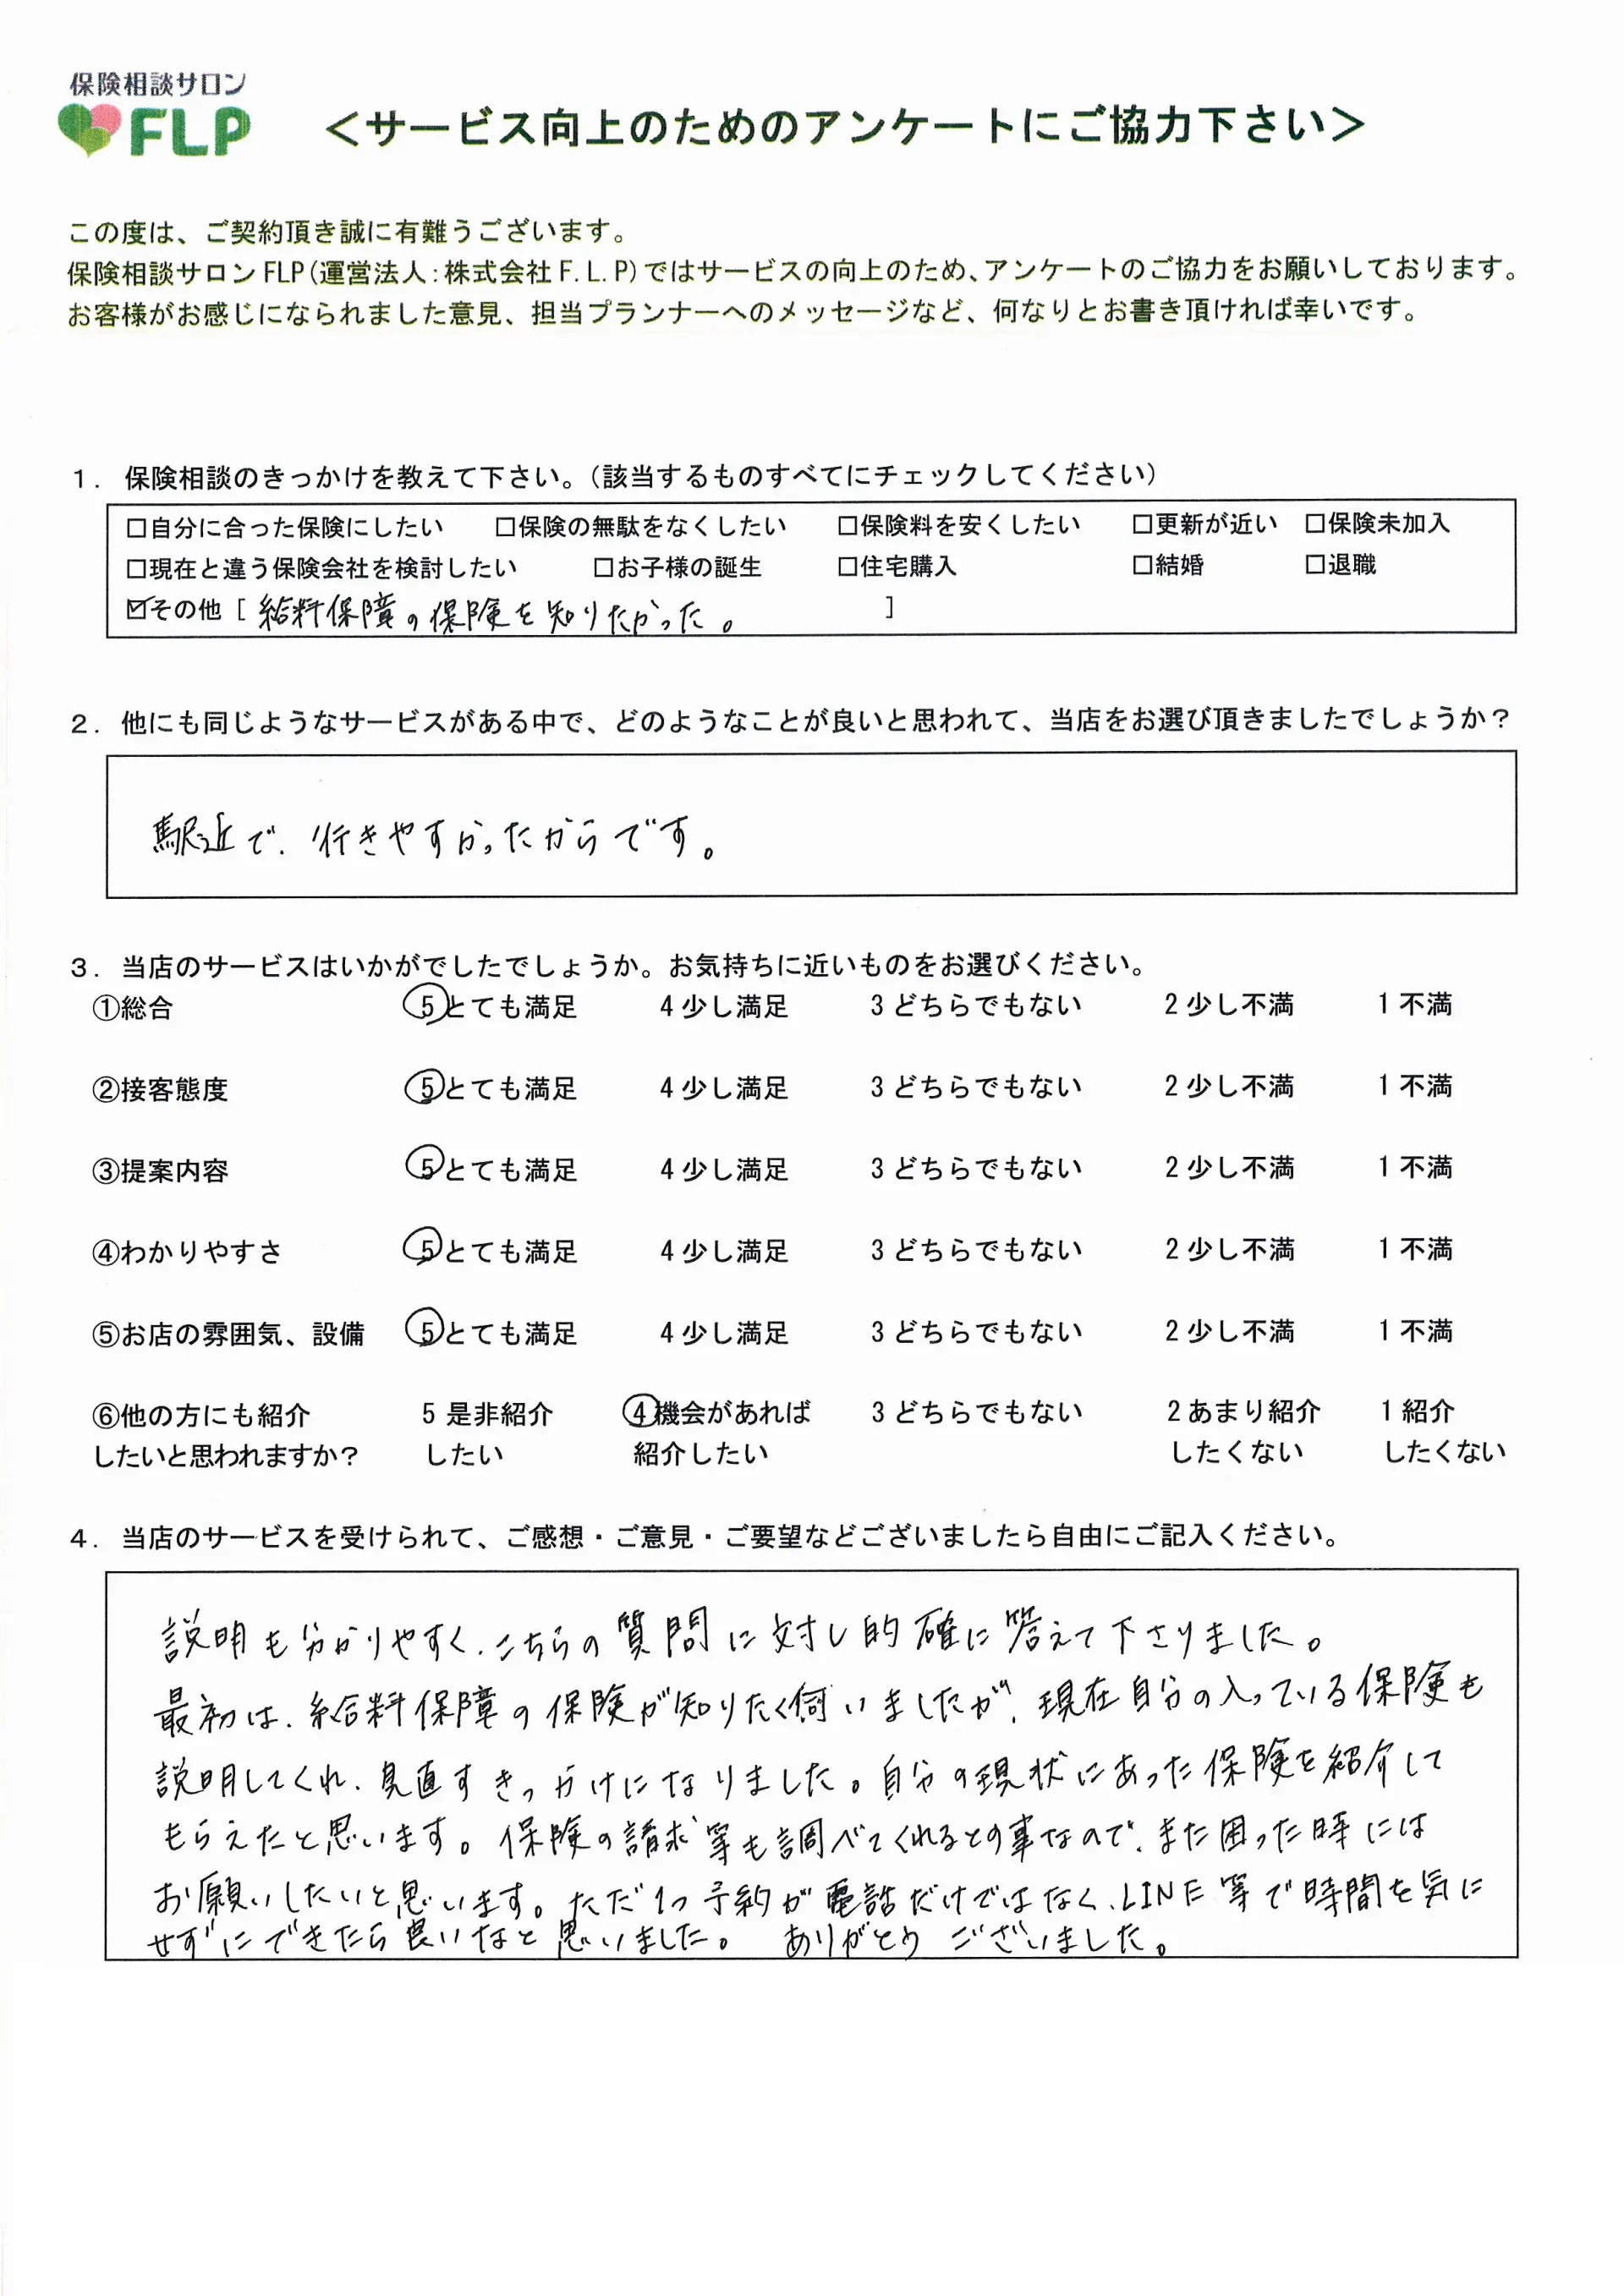 保険相談サロン
FLP
＜サービス向上のためのアンケートにご協力下さい＞
この度は、ご契約頂き誠に有難うございます。
保険相談サロン FLP(運営法人：株式会社 F.L.P)ではサービスの向上のため、アンケートのご協力をお願いしております。
お客様がお感じになられました意見、担当プランナーへのメッセージなど、何なりとお書き頂ければ幸いです。
１．保険相談のきっかけを教えて下さい。（該当するものすべてにチェックしてください）
□自分に合った保険にしたい □保険の無駄をなくしたい □保険料を安くしたい □更新が近い □保険未加入
□現在と違う保険会社を検討したい □お子様の誕生 □住宅購入 □結婚 □退職
☑その他［ 給料保障の保険を知りたかった。 ］
２．他にも同じようなサービスがある中で、どのようなことが良いと思われて、当店をお選び頂きましたでしょうか？
駅近で、行きやすかったからです。
３．当店のサービスはいかがでしたでしょうか。お気持ちに近いものをお選びください。
①総合 5 とても満足 4 少し満足 3 どちらでもない 2 少し不満 1 不満
②接客態度 5 とても満足 4 少し満足 3 どちらでもない 2 少し不満 1 不満
③提案内容 5 とても満足 4 少し満足 3 どちらでもない 2 少し不満 1 不満
④わかりやすさ 5 とても満足 4 少し満足 3 どちらでもない 2 少し不満 1 不満
⑤お店の雰囲気、設備 5 とても満足 4 少し満足 3 どちらでもない 2 少し不満 1 不満
⑥他の方にも紹介 5 是非紹介 4 機会があれば 3 どちらでもない 2 あまり紹介 1 紹介
したいと思われますか？ したい 紹介したい したくない したくない
４．当店のサービスを受けられて、ご感想・ご意見・ご要望などございましたら自由にご記入ください。
説明も分かりやすく、こちらの質問に対し的確に答えて下さりました。
最初は、給料保障の保険が知りたく伺いましたが、現在自分の入っている保険も
説明してくれ、見直すきっかけになりました。自分の現状にあった保険を紹介して
もらえたと思います。保険の請求等も調べてくれるとの事なので、また困った時には
お願いしたいと思います。ただ1つ予約が電話だけではなく、LINE等で時間を気に
せずにできたら良いなと思いました。 ありがとうございました。